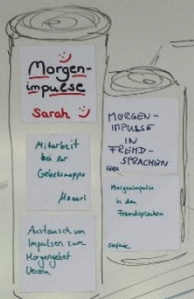 Morgen-
impulse
Sarah
Mitarbeit
bei der
Gebetsmappe
Austausch von
Impulsen zum
Morgengebet
Verena
MORGEN-
IMPULSE
IN
FREMD-
SPRACHEN
Morgenimpulse
in den
Fremdsprachen
Stefanie